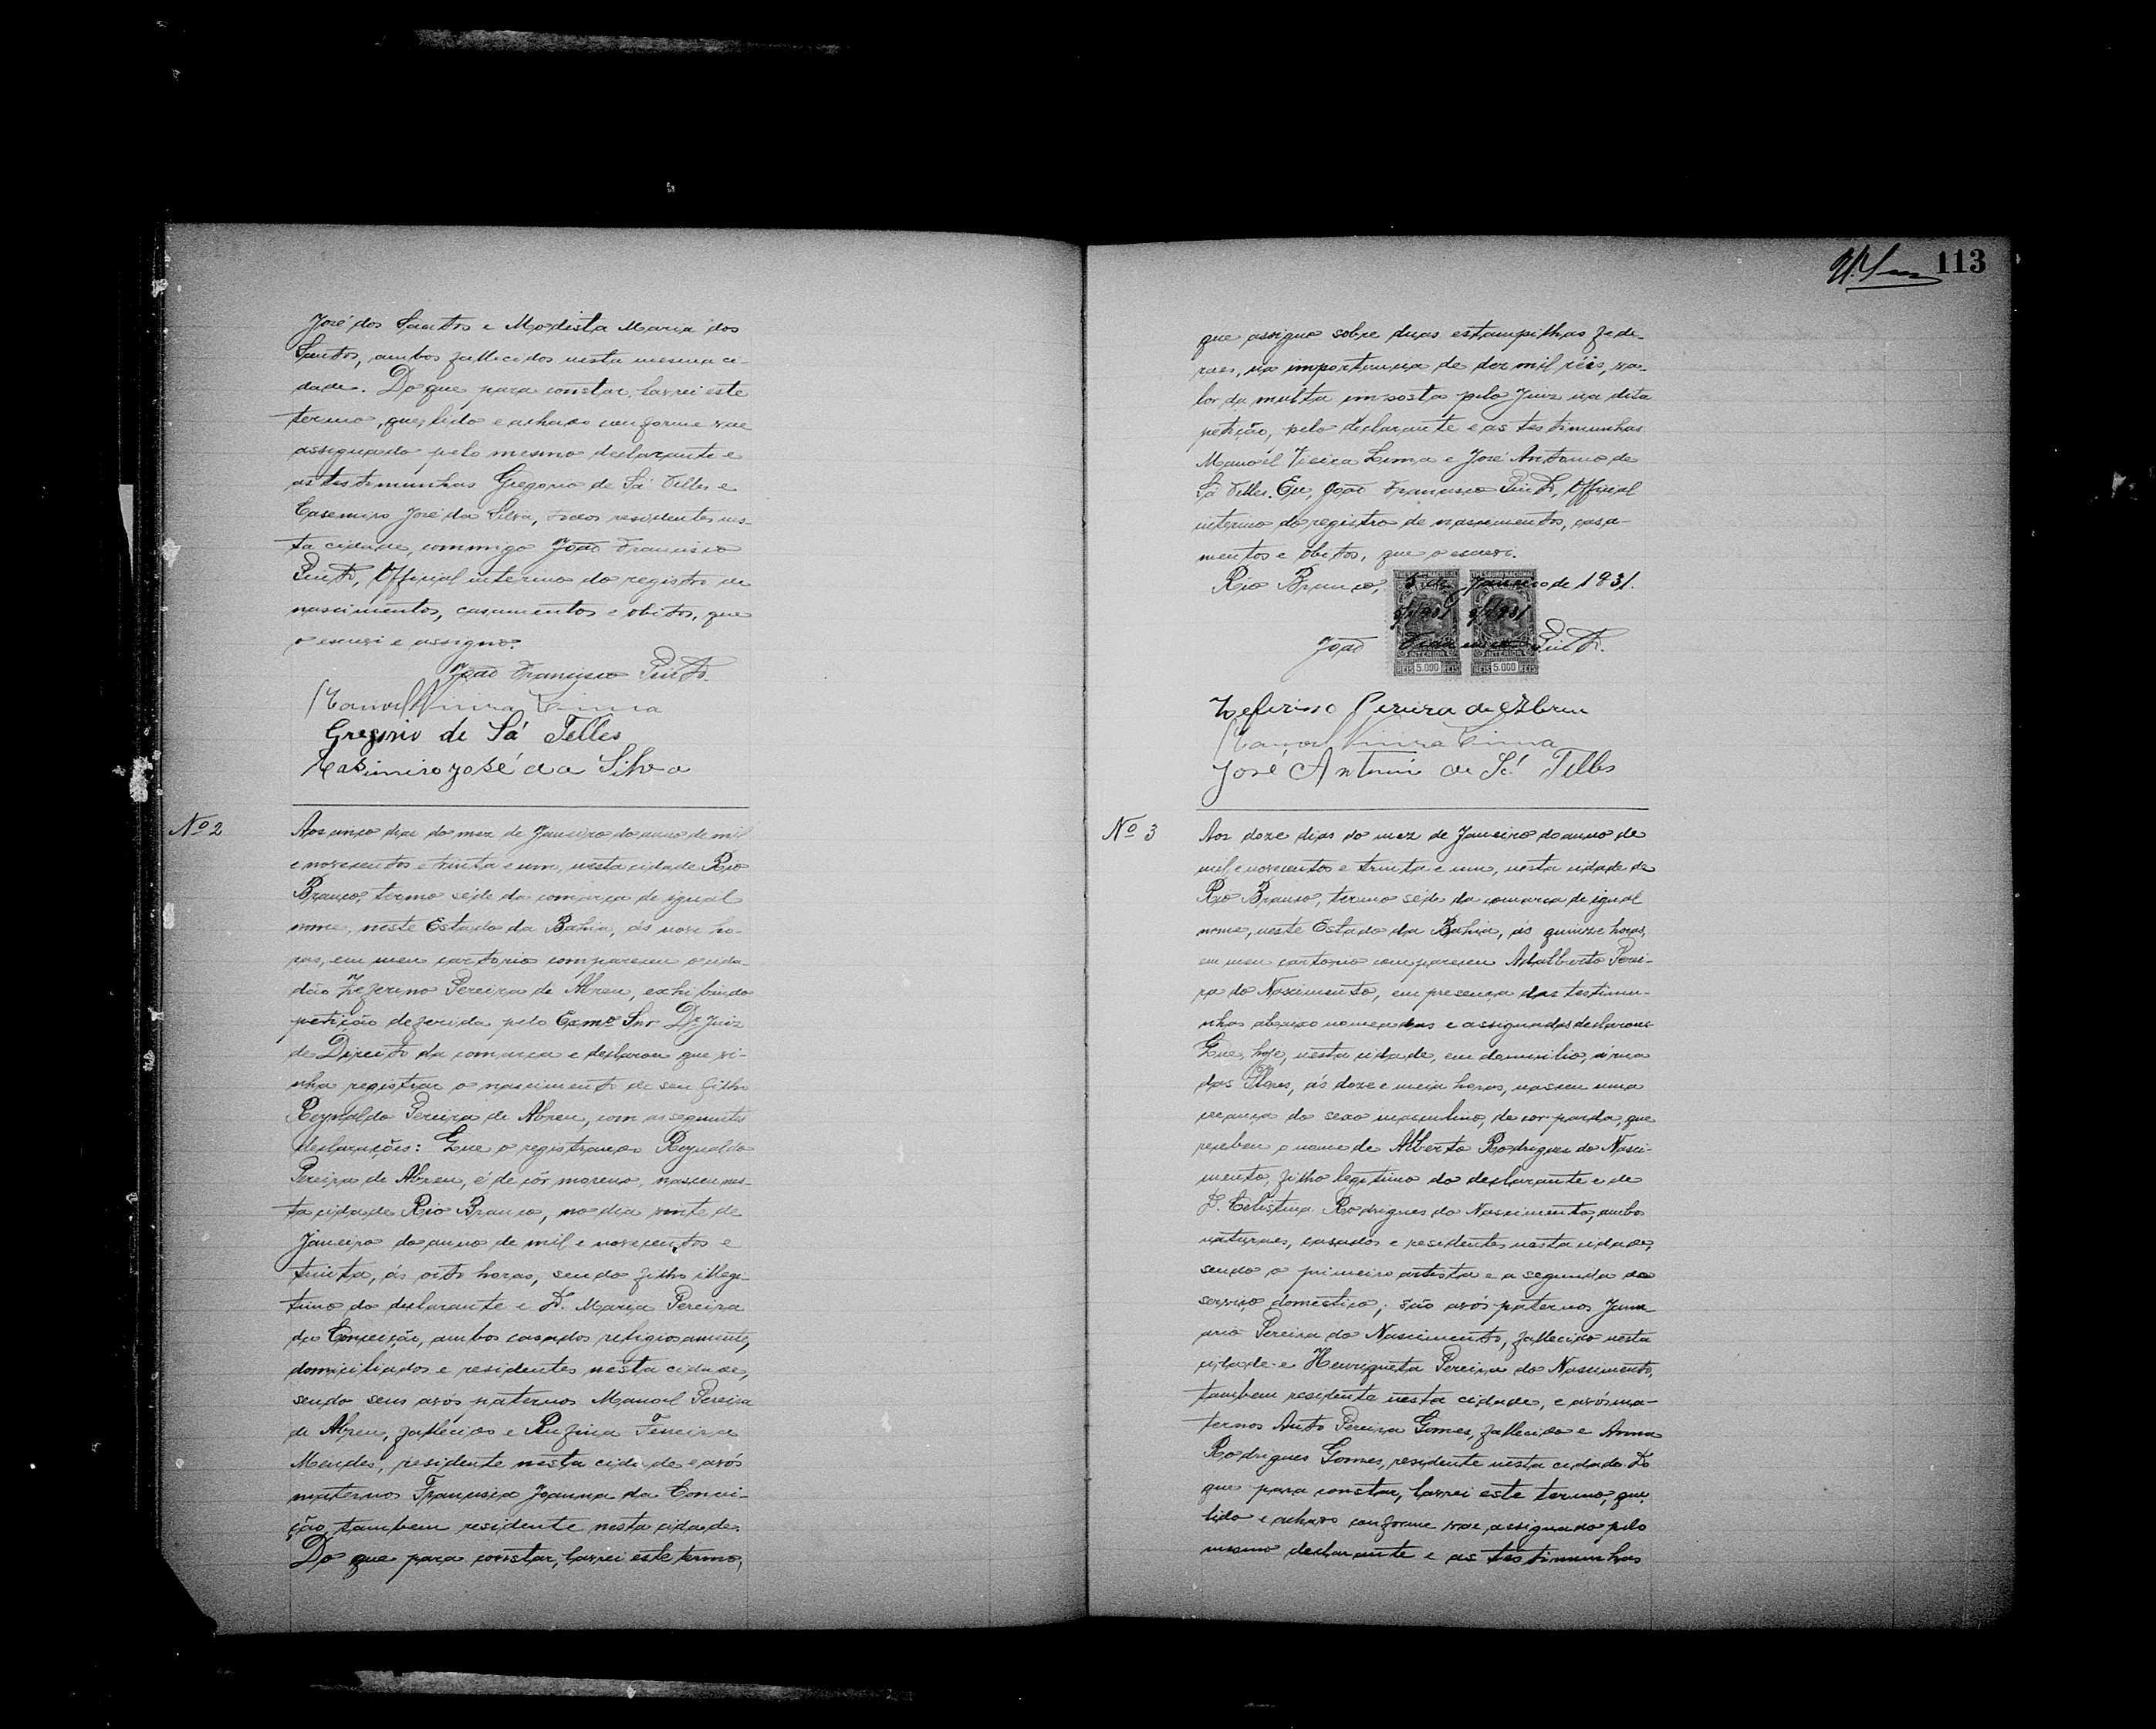 José dos Santos e Modesta Maria dos
Santos, ambos fallecidos nesta mesma ci-
dade. Do que para constar, lavrei este
termo, que, lido e achado conforme vae
assignado pelo mesmo declarante e
as testimunhas Gregorio de Sá Telles e
Casemiro José da Silva, todos residentes nes-
ta cidade, commigo João Francisco
Pinto, Official interino do registro de
nascimentos, casamentos e obitos, que
o escrevi e assigno.
João Francisco Pinto.
Manoel Vieira Lima
Gregorio de Sá Telles
Casimiro José da Silva
Nº 2
Aos cinco dias do mez de Janeiro do anno de mil
e novecentos e trinta e um, nesta cidade Rio
Branco, termo séde da comarca de igual
nome, neste Estado da Bahia, ás nove ho-
ras, em meu cartorio compareceu o cida-
dão Zeferino Pereira de Abreu, exhibindo
petição deferida pelo Exmº Snr. Dr. Juiz
de Direito da comarca e declarou que vi-
nha registrar o nascimento de seu filho
Reynaldo Pereira de Abreu, com as seguintes
declarações: Que o registrando Reynaldo
Pereira de Abreu, é de côr morena, nasceu nes-
ta cidade Rio Branco, no dia vinte de
Janeiro do anno de mil e novecentos e
trinta, ás oito horas, sendo filho illegi-
timo do declarante e D. Maria Pereira
da Conceição, ambos casados religiosamente,
domiciliados e residentes nesta cidade,
sendo seus avós paternos Manoel Pereira
de Abreu, fallecido e Rufina Ferreira
Mendes, residente nesta cidade e avós
maternos Francisca Joanna da Concei-
ção, tambem residente nesta cidade.
Do que para constar, lavrei este termo,
113
que assigno sobre duas estampilhas fede-
raes, na importancia de dez mil réis, va-
lor da multa imposta pelo Juiz na dita
petição, pelo declarante e as testimunhas
Manoel Vieira Lima e José Antonio de
Sá Telles. Eu, João Francisco Pinto, Official
interino do registro de nascimentos, casa-
mentos e obitos, que o escrevi.
Rio Branco, 5 de Janeiro de 1931.
João Francisco Pinto.
INTERIOR INTERIOR
REIS 5.000 REIS REIS 5.000 REIS
Zeferino Pereira de Abreu
Manoel Vieira Lima
José Antonio de Sá Telles
Nº 3
Aos doze dias do mez de Janeiro do anno de
mil e novecentos e trinta e um, nesta cidade de
Rio Branco, termo séde da comarca de igual
nome, neste Estado da Bahia, ás quinze horas,
em meu cartorio compareceu Adalberto Perei-
ra do Nascimento, em presença das testimu-
nhas abaixo nomeadas e assignadas declarou:
Que, hoje, nesta cidade, em domicilio, á rua
das Flores, ás doze e meia horas, nasceu uma
creança do sexo masculino, de cor parda, que
recebeu o nome de Alberto Rodrigues do Nasci-
mento, filho legitimo do declarante e de
D. Celistina Rodrigues do Nascimento, ambos
naturaes, casados e residentes nesta cidade,
sendo o primeiro artista e a segunda de
serviço domestico; são avós paternos Janu
ario Pereira do Nascimento, fallecido nesta
cidade e Henriqueta Pereira do Nascimento,
tambem residente nesta cidade, e avós ma-
ternos Anto Pereira Gomes, fallecido e Anna
Rodrigues Gomes, residente nesta cidade. Do
que para constar, lavrei este termo, que,
lido e achado conforme vae assignado pelo
mesmo declarante e as testimunhas